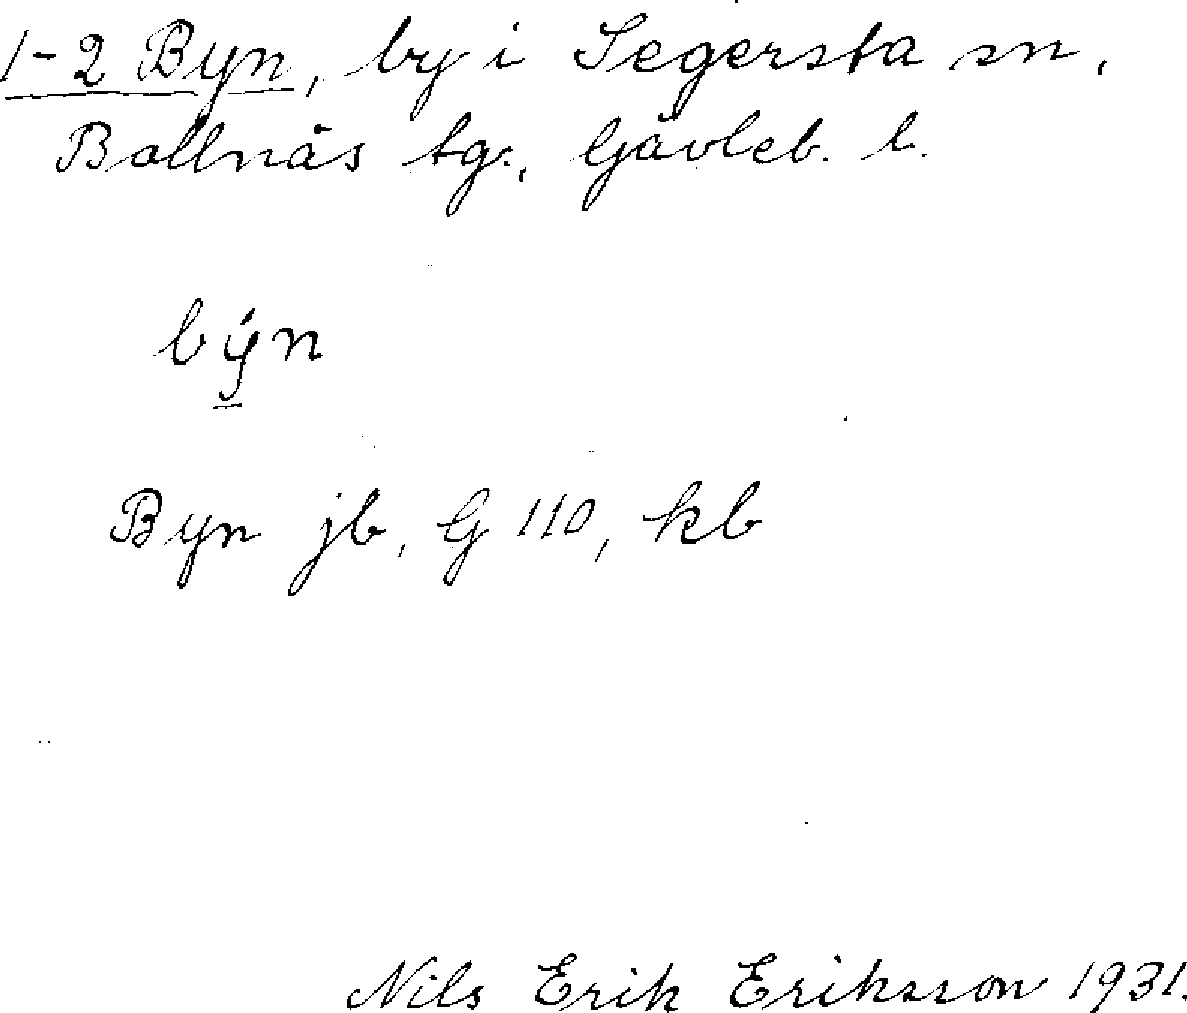 1-2 Byn, by i Segersta sn,
Bollnäs tg, Gävleb. l.
býn
Byn jb, G 110, kb
Nils Erik Eriksson 1931.